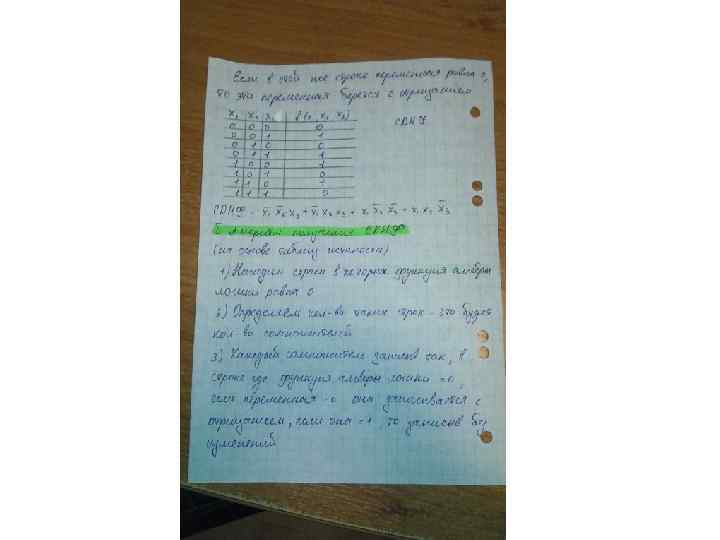 Если в этой же строке переменная равна 0,
то эта переменная берется с отрицанием
x₁ x₂ x₃ f(x₁ x₂ x₃)
0 0 0 0
0 0 1 1
0 1 0 0
0 1 1 1
1 0 0 1
1 0 1 0
1 1 0 1
1 1 1 0
СДНФ
СДНФ = x̅₁ x̅₂ x₃ + x̅₁ x₂ x₃ + x₁ x̅₂ x̅₃ + x₁ x₂ x̅₃
получения СДНФ
(на основе таблицы истинности)
1) Находим строки в которых функция алгебры
логики равна 0
2) Определяем кол-во таких строк - это будет
кол-во сомножителей
3) Каждый сомножитель записыв так, в
строке где функция алгебры логики =0,
если переменная =0 она записывается с
отрицанием, если она =1, то записыв без
изменений